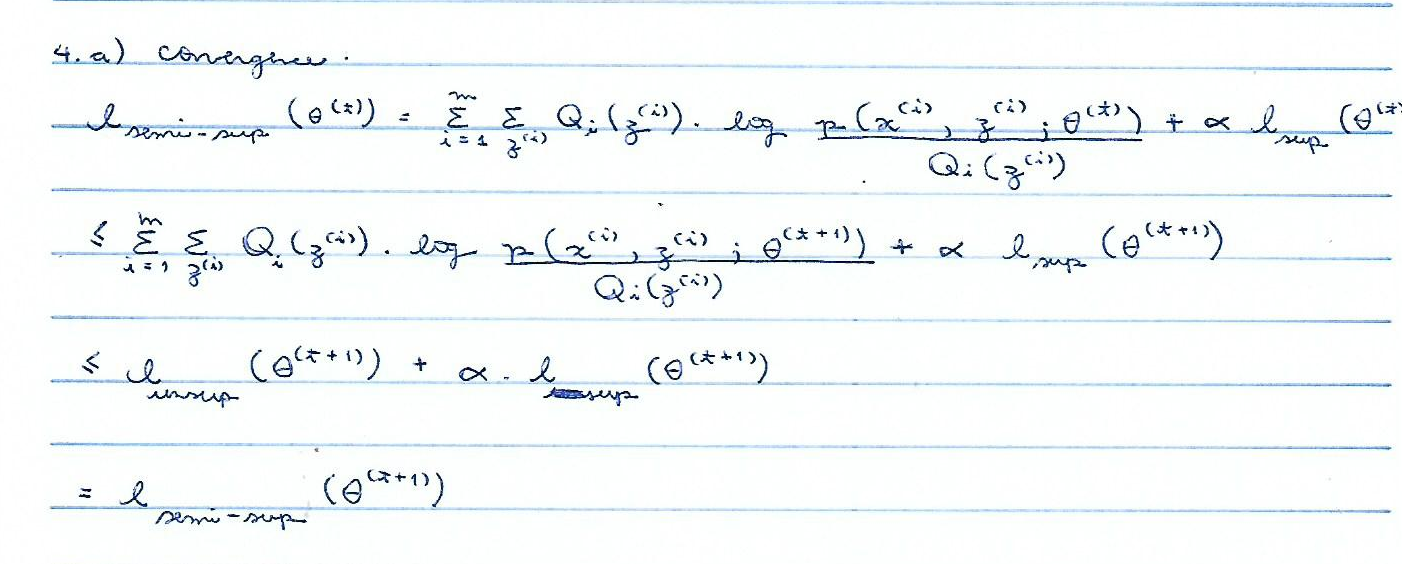 4. a) convergence.
l_semi-sup (θ^(t)) = Σ_{i=1}^{m} Σ_{z^(i)} Q_i(z^(i)) . log p(x^(i), z^(i); θ^(t)) / Q_i(z^(i)) + α l_sup (θ^(t
≤ Σ_{i=1}^{m} Σ_{z^(i)} Q_i(z^(i)) . log p(x^(i), z^(i); θ^(t+1)) / Q_i(z^(i)) + α l_sup (θ^(t+1))
≤ l_unsup (θ^(t+1)) + α . l_sup (θ^(t+1))
= l_semi-sup (θ^(t+1))